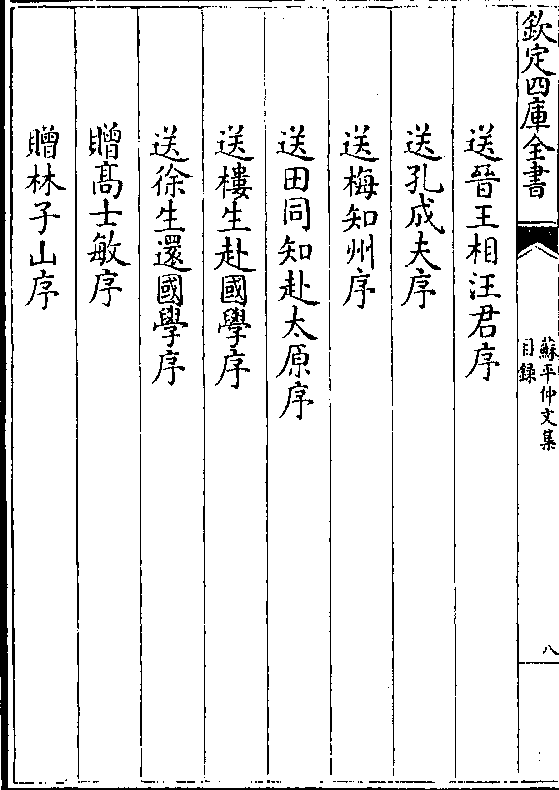 欽定四庫全書
蘇平仲文集
目録
八
送晉王相汪君序
送孔成夫序
送梅知州序
送田同知赴太原序
送樓生赴國學序
送徐生還國學序
贈髙士敏序
贈林子山序